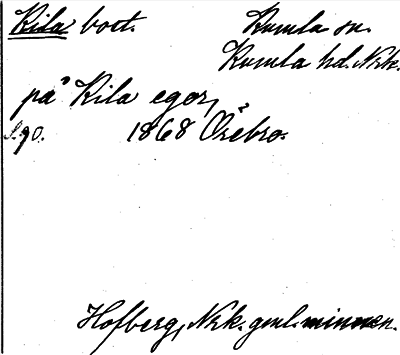 Kila bost. Kumla sn.
Kumla hd. Nrke.
på Kila egor,
S. 90. 1868 Örebro.
Hofberg, Nrk. gml. minnen.